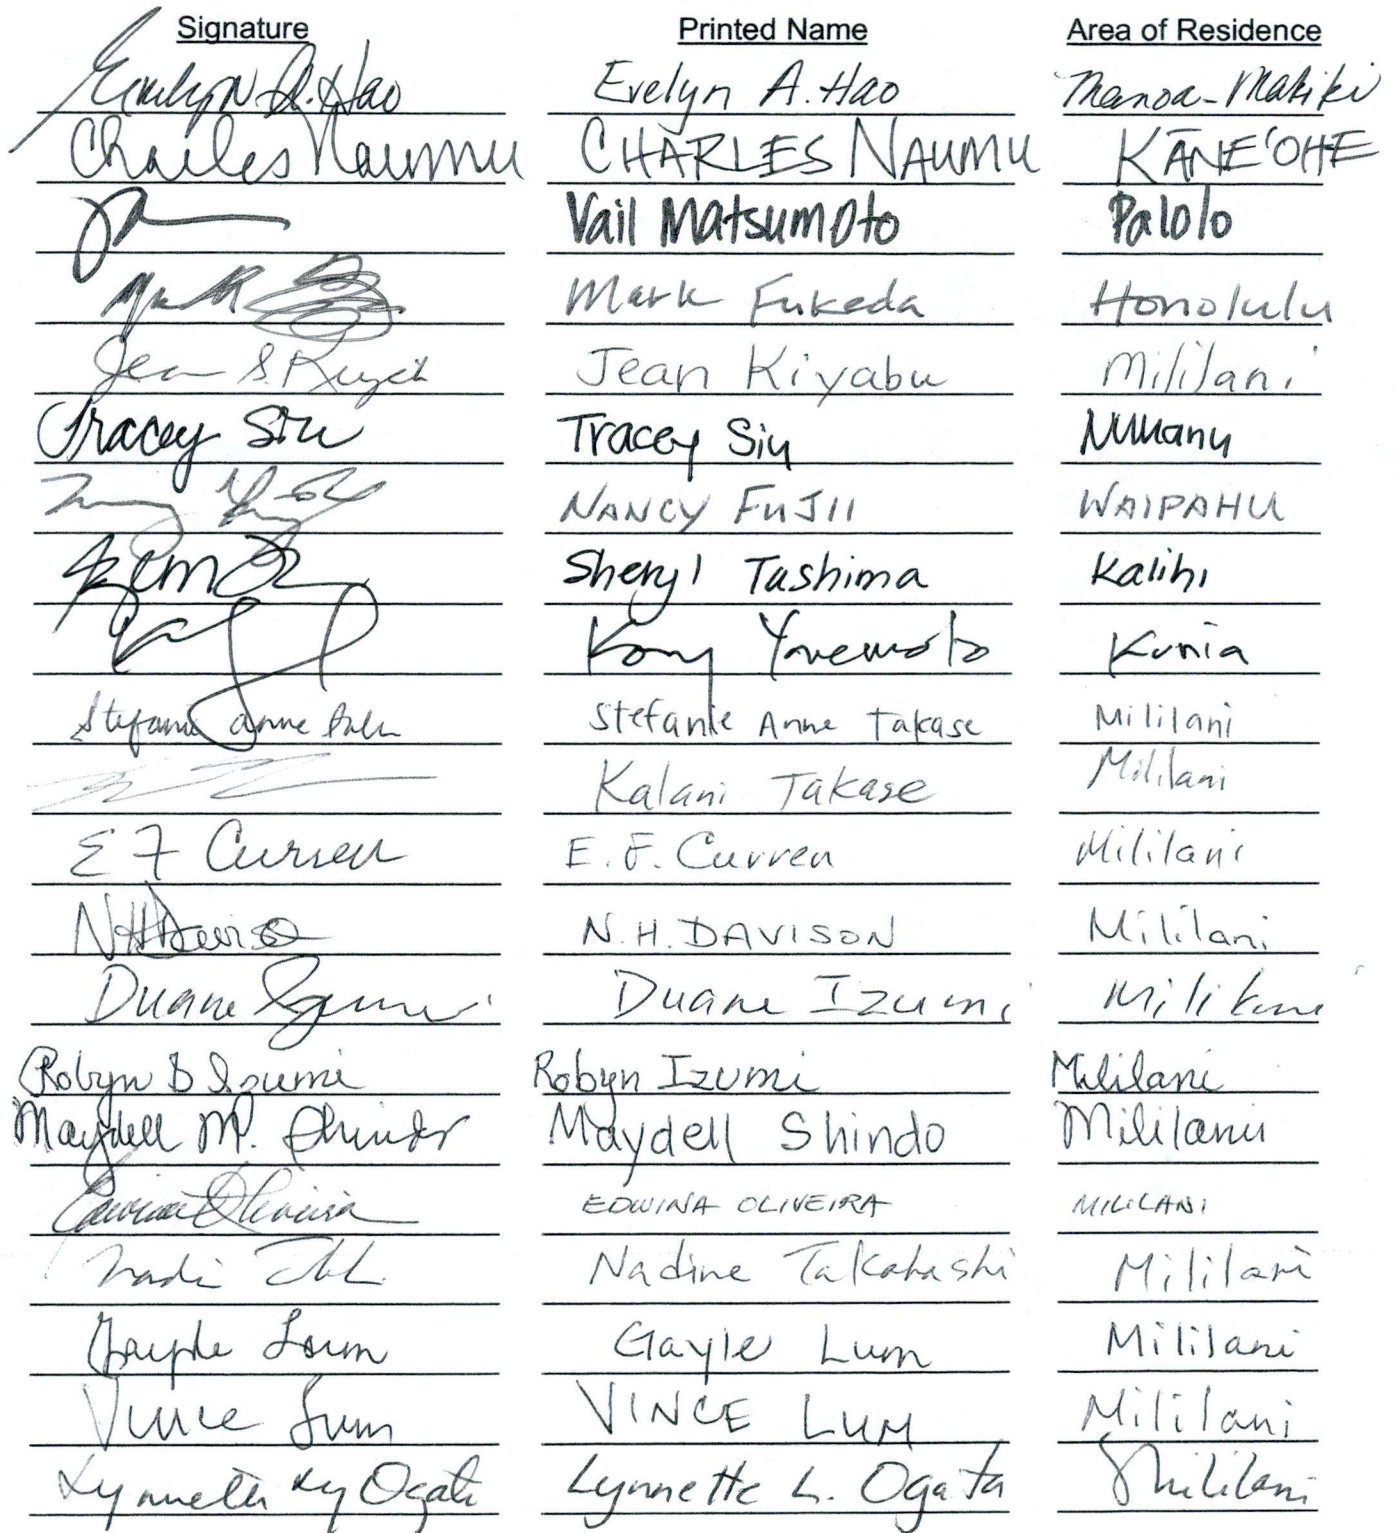 Signature Printed Name Area of Residence
Evelyn A. Hao Evelyn A. Hao Manoa-Makiki
Charles Naumu CHARLES NAUMU KĀNE'OHE
Vail Matsumoto Palolo
Mark Fukeda Honolulu
Jean S. Jean Kiyabu Mililani
Tracey Siu Tracey Siu Nuuanu
NANCY FUJII WAIPAHU
Sheryl Tashima Kalihi
Kory Yonemoto Kunia
Stefanie Anne Stefanie Anne Takase Mililani
Kalani Takase Mililani
E F Curren E. F. Curren Mililani
NH Davison N.H. DAVISON Mililani
Duane Izumi Duane Izumi Mililani
Robyn D Izumi Robyn Izumi Mililani
Maydell M. Shindo Maydell Shindo Mililani
Edwina Oliveira EDWINA OLIVEIRA MILILANI
Nadine Takahashi Mililani
Gayle Lum Gayle Lum Mililani
Vince Lum VINCE LUM Mililani
Lynnette Ogata Lynnette L. Ogata Mililani